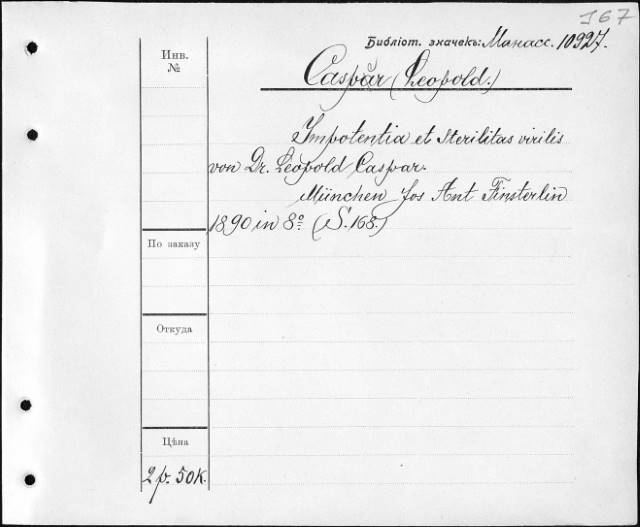 167
Библіот. значекъ: Манасс. 10927.
Инв.
№
Caspar (Leopold.)
Impotentia et Sterilitas virilis
von Dr. Leopold Caspar.
München Jos Ant Finsterlin
1890 in 8º (S. 168.)
По заказу
Откуда
Цѣна
2 р. 50 к.